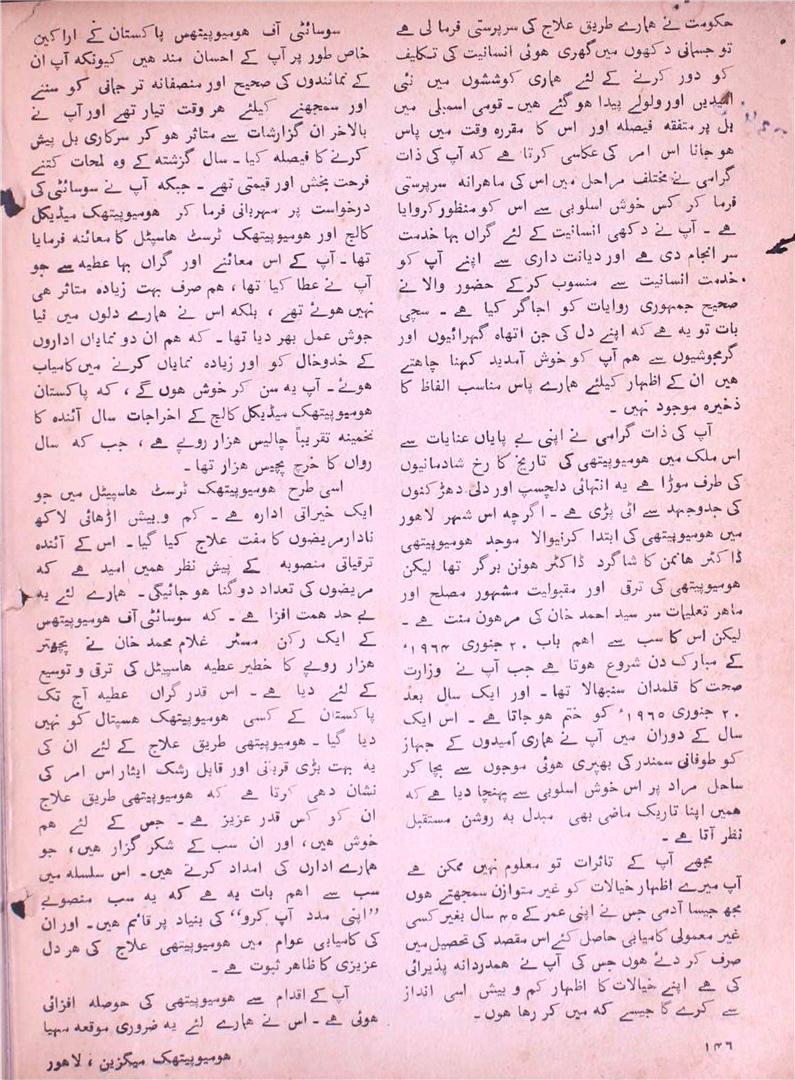 حکومت نے ہمارے طریق علاج کی سرپرستی فرما لی ہے
تو جسمانی دکھوں میں گھری ہوئی انسانیت کی تکلیف
کو دور کرنے کے لئے ہماری کوششوں میں نئی
امیدیں اور ولولے پیدا ہو گئے ہیں۔ قومی اسمبلی میں
بل پر متفقہ فیصلہ اور اس کا مقررہ وقت میں پاس
ہو جانا اس امر کی عکاسی کرتا ہے کہ آپ کی ذات
گرامی نے مختلف مراحل میں اس کی ماہرانہ سرپرستی
فرما کر کس خوش اسلوبی سے اس کو منظور کروایا
ہے ۔ آپ نے دکھی انسانیت کے لئے گراں بہا خدمت
سر انجام دی ہے اور دیانت داری سے اپنے آپ کو
خدمت انسانیت سے منسوب کرکے حضور والا نے
صحیح جمہوری روایات کو اجاگر کیا ہے ۔ سچی
بات تو یہ ہے کہ اپنے دل کی جن اتھاہ گہرائیوں اور
گرمجوشیوں سے ہم آپ کو خوش آمدید کہنا چاہتے
ہیں ان کے اظہار کیلئے ہمارے پاس مناسب الفاظ کا
ذخیرہ موجود نہیں ۔
آپ کی ذات گرامی نے اپنی بے پایاں عنایات سے
اس ملک میں ہومیوپیتھی کی تاریخ کا رخ شادمانیوں
کی طرف موڑا ہے یہ انتہائی دلچسپ اور دلی دھڑکنوں
کی جدوجہد سے اٹی پڑی ہے ۔ اگرچہ اس شہر لاہور
میں ہومیوپیتھی کی ابتدا کرنیوالا موجد ہومیوپیتھی
ڈاکٹر ہانمن کا شاگرد ڈاکٹر ہونن برگر تھا لیکن
ہومیوپیتھی کی ترقی اور مقبولیت مشہور مصلح اور
ماہر تعلیمات سر سید احمد خان کی مرہون منت ہے ۔
لیکن اس کا سب سے اہم باب ۲۰ جنوری ۱۹۶۴ء
کے مبارک دن شروع ہوتا ہے جب آپ نے وزارت
صحت کا قلمدان سنبھالا تھا ۔ اور ایک سال بعد
۲۰ جنوری ۱۹۶۵ء کو ختم ہو جاتا ہے ۔ اس ایک
سال کے دوران میں آپ نے ہماری امیدوں کے جہاز
کو طوفانی سمندر کی بپھری ہوئی موجوں سے بچا کر
ساحل مراد پر اس خوش اسلوبی سے پہنچا دیا ہے کہ
ہمیں اپنا تاریک ماضی بھی مبدل بہ روشن مستقبل
نظر آتا ہے ۔
مجھے آپ کے تاثرات تو معلوم نہیں ممکن ہے
آپ میرے اظہار خیالات کو غیر متوازن سمجھتے ہوں
مجھ جیسا آدمی جس نے اپنی عمر کے ۴۵ سال بغیر کسی
غیر معمولی کامیابی حاصل کئے اس مقصد کی تحصیل میں
صرف کر دئے ہوں جس کی آپ نے ہمدردانہ پذیرائی
کی ہے اپنے خیالات کا اظہار کم و بیش اسی انداز
سے کرے گا جیسے کہ میں کر رہا ہوں ۔
سوسائٹی آف ہومیوپیتھس پاکستان کے اراکین
خاص طور پر آپ کے احسان مند ہیں کیونکہ آپ ان
کے نمائندوں کی صحیح اور منصفانہ تر جمانی کو سننے
اور سمجھنے کیلئے ہر وقت تیار تھے اور آپ نے
بالآخر ان گزارشات سے متاثر ہو کر سرکاری بل پیش
کرنے کا فیصلہ کیا ۔ سال گزشتہ کے وہ لمحات کتنے
فرحت بخش اور قیمتی تھے ۔ جبکہ آپ نے سوسائٹی کی
درخواست پر مہربانی فرما کر ہومیوپیتھک میڈیکل
کالج اور ہومیوپیتھک ٹرسٹ ہاسپٹل کا معائنہ فرمایا
تھا ۔ آپ کے اس معائنے اور گراں بہا عطیہ سے جو
آپ نے عطا کیا تھا ، ہم صرف بہت زیادہ متاثر ہی
نہیں ہوئے تھے ، بلکہ اس نے ہمارے دلوں میں نیا
جوش عمل بھر دیا تھا ۔ کہ ہم ان دو نمایاں اداروں
کے خدوخال کو اور زیادہ نمایاں کرنے میں کامیاب
ہوئے ۔ آپ یہ سن کر خوش ہوں گے ، کہ پاکستان
ہومیوپیتھک میڈیکل کالج کے اخراجات سال آئندہ کا
تخمینہ تقریباً چالیس ہزار روپے ہے ، جب کہ سال
رواں کا خرچ پچیس ہزار تھا ۔
اسی طرح ہومیوپیتھک ٹرسٹ ہاسپٹل میں جو
ایک خیراتی ادارہ ہے ۔ کم و بیش اڑھائی لاکھ
نادار مریضوں کا مفت علاج کیا گیا ۔ اس کے آئندہ
ترقیاتی منصوبہ کے پیش نظر ہمیں امید ہے کہ
مریضوں کی تعداد دوگنا ہو جائیگی ۔ ہمارے لئے یہ
بے حد ہمت افزا ہے ۔ کہ سوسائٹی آف ہومیوپیتھس
کے ایک رکن مسٹر غلام محمد خان نے پچھتر
ہزار روپے کا خطیر عطیہ ہاسپٹل کی ترقی و توسیع
کے لئے دیا ہے ۔ اس قدر گراں عطیہ آج تک
پاکستان کے کسی ہومیوپیتھک ہسپتال کو نہیں
دیا گیا ۔ ہومیوپیتھی طریق علاج کے لئے ان کی
یہ بہت بڑی قربانی اور قابل رشک ایثار اس امر کی
نشان دہی کرتا ہے کہ ہومیوپیتھی طریق علاج
ان کو کس قدر عزیز ہے ۔ جس کے لئے ہم
خوش ہیں ، اور ان سب کے شکر گزار ہیں ، جو
ہمارے ادارں کی امداد کرتے ہیں ۔ اس سلسلہ میں
سب سے اہم بات یہ ہے کہ یہ سب منصوبے
”اپنی مدد آپ کرو“ کی بنیاد پر قائم ہیں ۔ اور ان
کی کامیابی عوام میں ہومیوپیتھی علاج کی ہر دل
عزیزی کا ظاہر ثبوت ہے ۔
آپ کے اقدام سے ہومیوپیتھی کی حوصلہ افزائی
ہوئی ہے ۔ اس نے ہمارے لئے یہ ضروری موقعہ مہیا
۱۴۶
ہومیوپیتھک میگزین ، لاہور